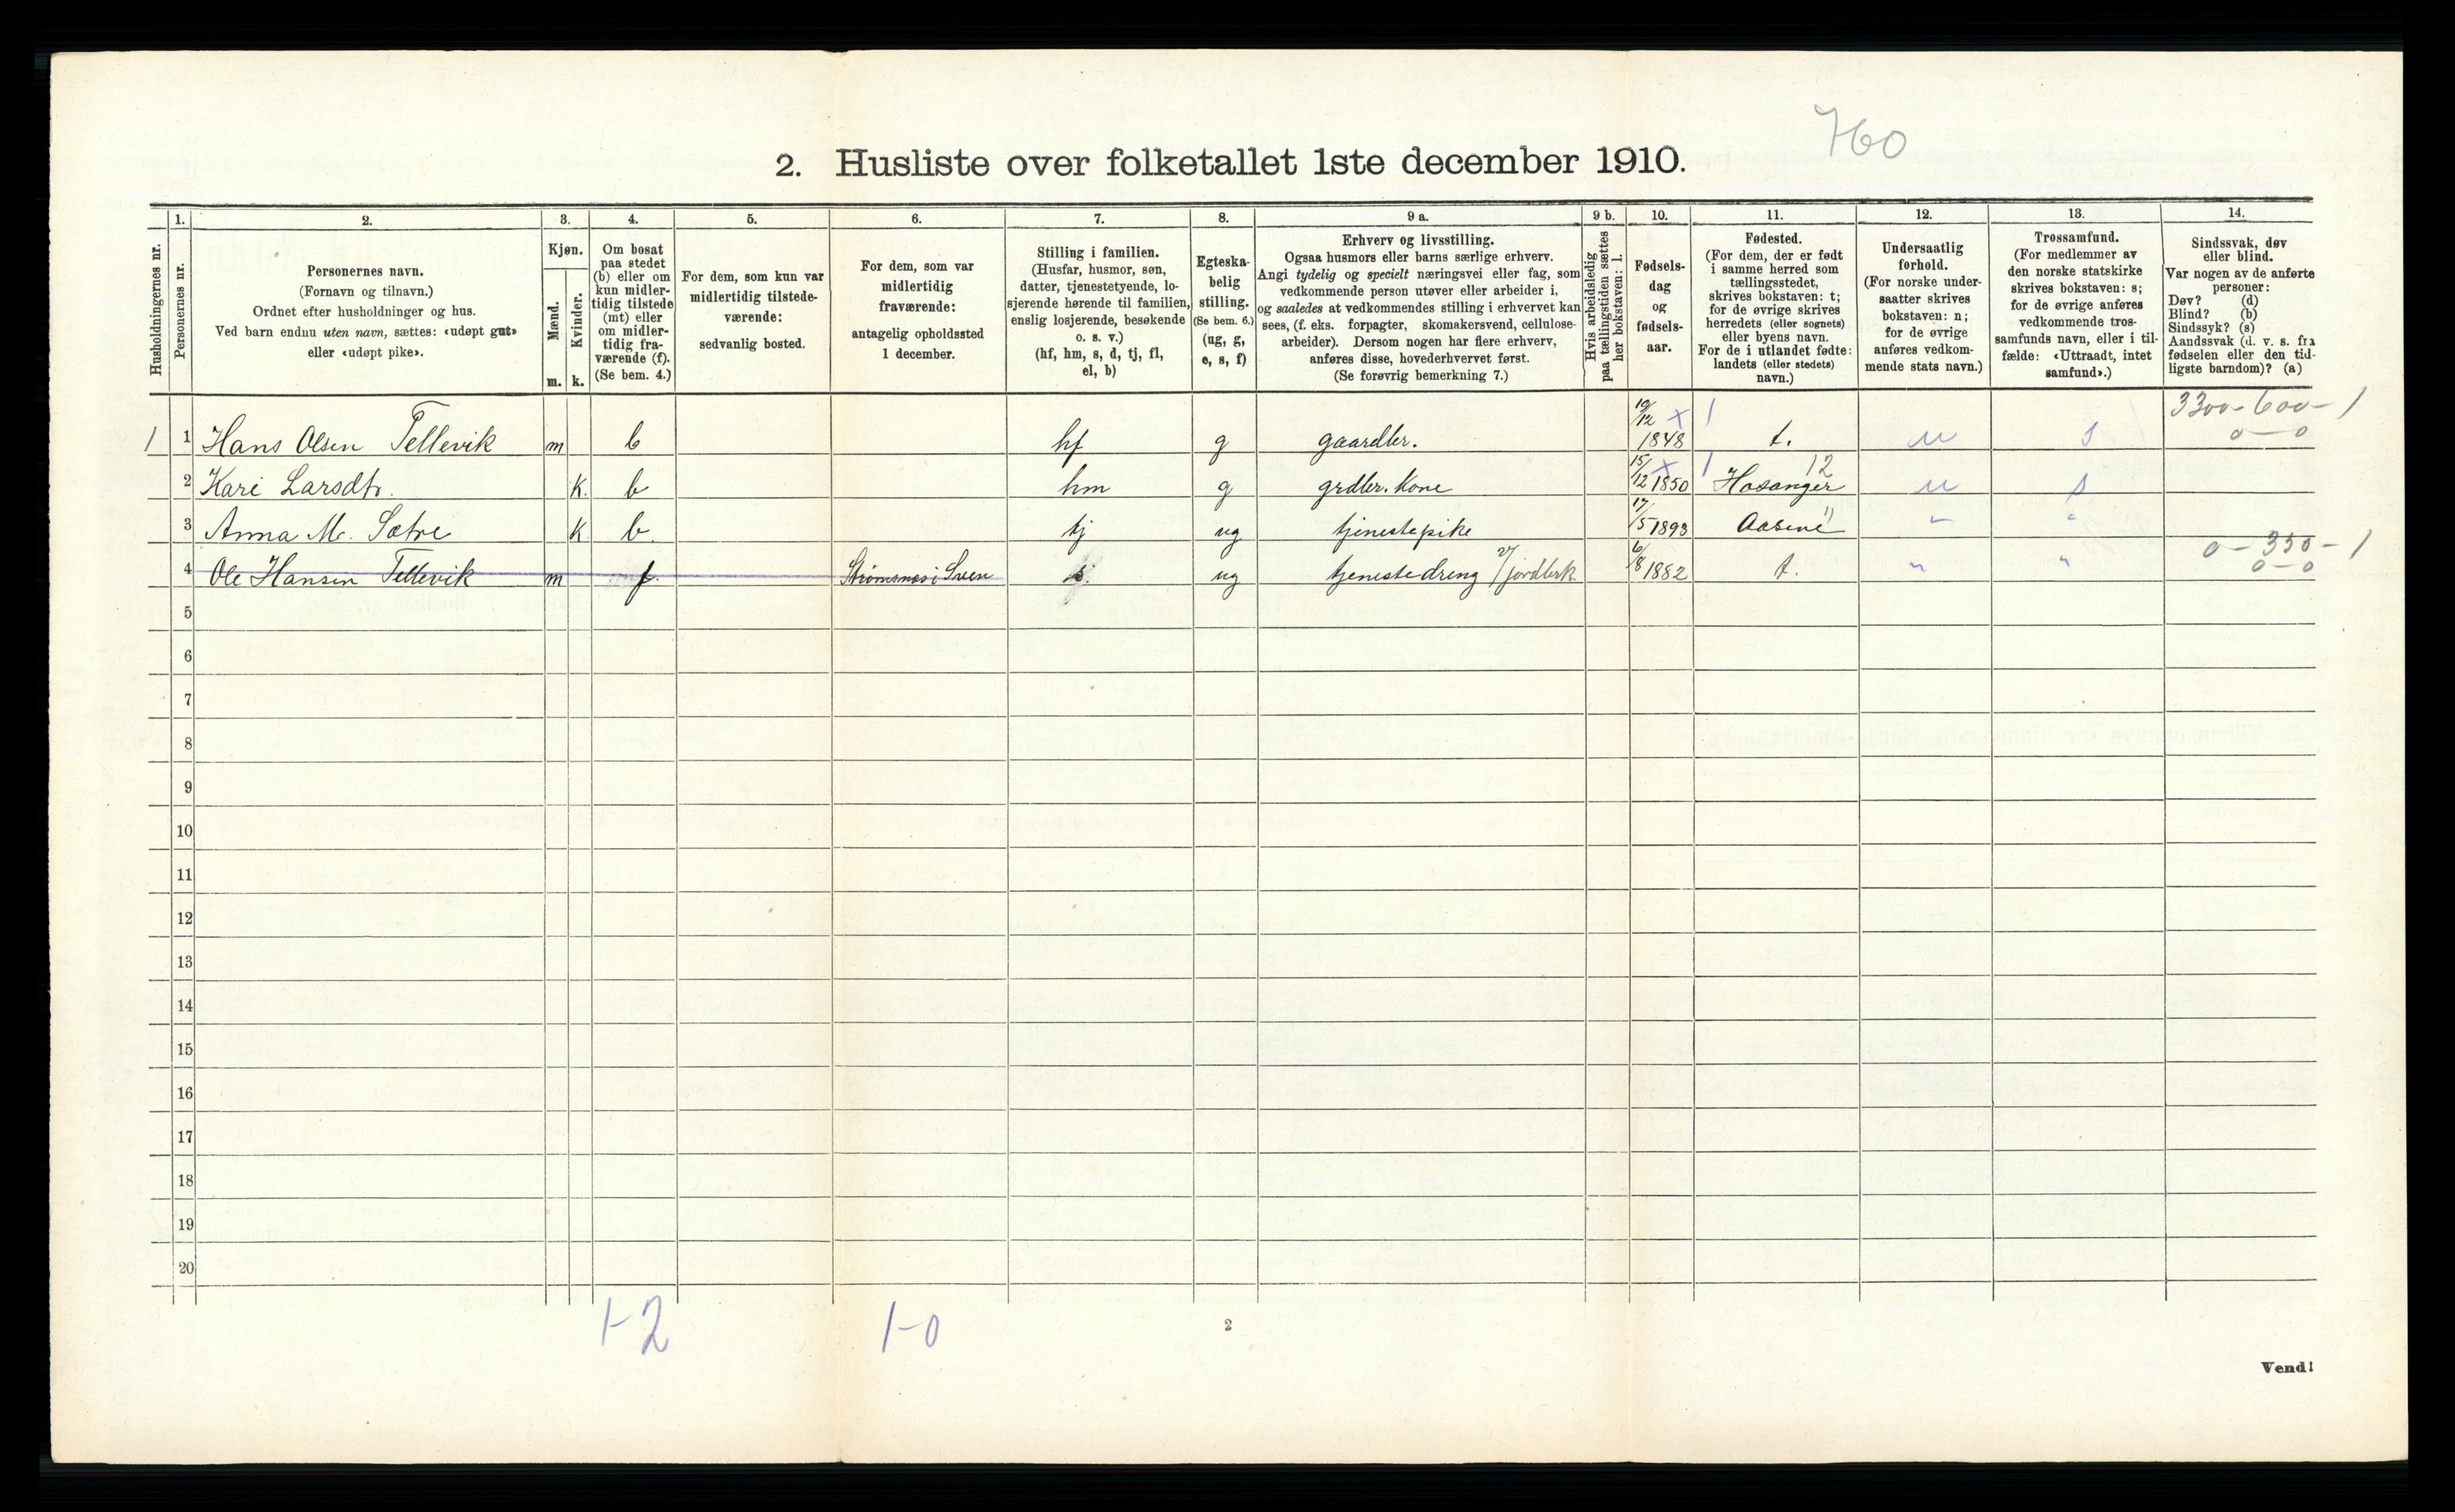 760
2. Husliste over folketallet 1ste december 1910.
Husholdningernes nr.
1.
Personernes nr.
2.
Personernes navn.
(Fornavn og tilnavn.)
Ordnet efter husholdninger og hus.
Ved barn endnu uten navn, sættes: «udøpt gut»
eller «udøpt pike».
3.
Kjøn.
Mænd.
Kvinder.
m. k.
4.
Om bosat
paa stedet
(b) eller om
kun midler-
tidig tilstede
(mt) eller
om midler-
tidig fra-
værende (f).
(Se bem. 4.)
5.
For dem, som kun var
midlertidig tilstede-
værende:
sedvanlig bosted.
6.
For dem, som var
midlertidig
fraværende:
antagelig opholdssted
1 december.
7.
Stilling i familien.
(Husfar, husmor, søn,
datter, tjenestetyende, lo-
sjerende hørende til familien,
enslig losjerende, besøkende
o. s. v.)
(hf, hm, s, d, tj, fl,
el, b)
8.
Egteska-
belig
stilling.
(Se bem. 6.)
(ug, g,
e, s, f)
9 a.
Erhverv og livsstilling.
Ogsaa husmors eller barns særlige erhverv.
Angi tydelig og specielt næringsvei eller fag, som
vedkommende person utøver eller arbeider i,
og saaledes at vedkommendes stilling i erhvervet kan
sees, (f. eks. forpagter, skomakersvend, cellulose-
arbeider). Dersom nogen har flere erhverv,
anføres disse, hovederhvervet først.
(Se forøvrig bemerkning 7.)
9 b.
Hvis arbeidsledig
paa tællingstiden sættes
her bokstaven: l.
10.
Fødsels-
dag
og
fødsels-
aar.
11.
Fødested.
(For dem, der er født
i samme herred som
tællingsstedet,
skrives bokstaven: t;
for de øvrige skrives
herredets (eller sognets)
eller byens navn.
For de i utlandet fødte:
landets (eller stedets)
navn.)
12.
Undersaatlig
forhold.
(For norske under-
saatter skrives
bokstaven: n;
for de øvrige
anføres vedkom-
mende stats navn.)
13.
Trossamfund.
(For medlemmer av
den norske statskirke
skrives bokstaven: s;
for de øvrige anføres
vedkommende tros-
samfunds navn, eller i til-
fælde: «Uttraadt, intet
samfund».)
14.
Sindssvak, døv
eller blind.
Var nogen av de anførte
personer:
Døv? (d)
Blind? (b)
Sindssyk? (s)
Aandssvak (d. v. s. fra
fødselen eller den tid-
ligste barndom)? (a)
3300-600-1
1 1 Hans Olsen Tellevik m b hf g gaardbr. 19/12 1848 t. n s 0-0
12
2 Kari Larsdtr. k. b hm g grdbr. kone 15/12 1850 Hosanger n s
11
3 Anna M. Sætre k b. tj ug tjenestepike 17/5 1893 Aasene " "
0-350-1
4 Ole Hansen Tellevik m f Strømsnes i Sveen s. ug tjenestedreng v/ jordbrk. 6/8 1882 t. " " 0-0
5
6
7
8
9
10
11
12
13
14
15
16
17
18
19
20
1-2 1-0
2
Vend!